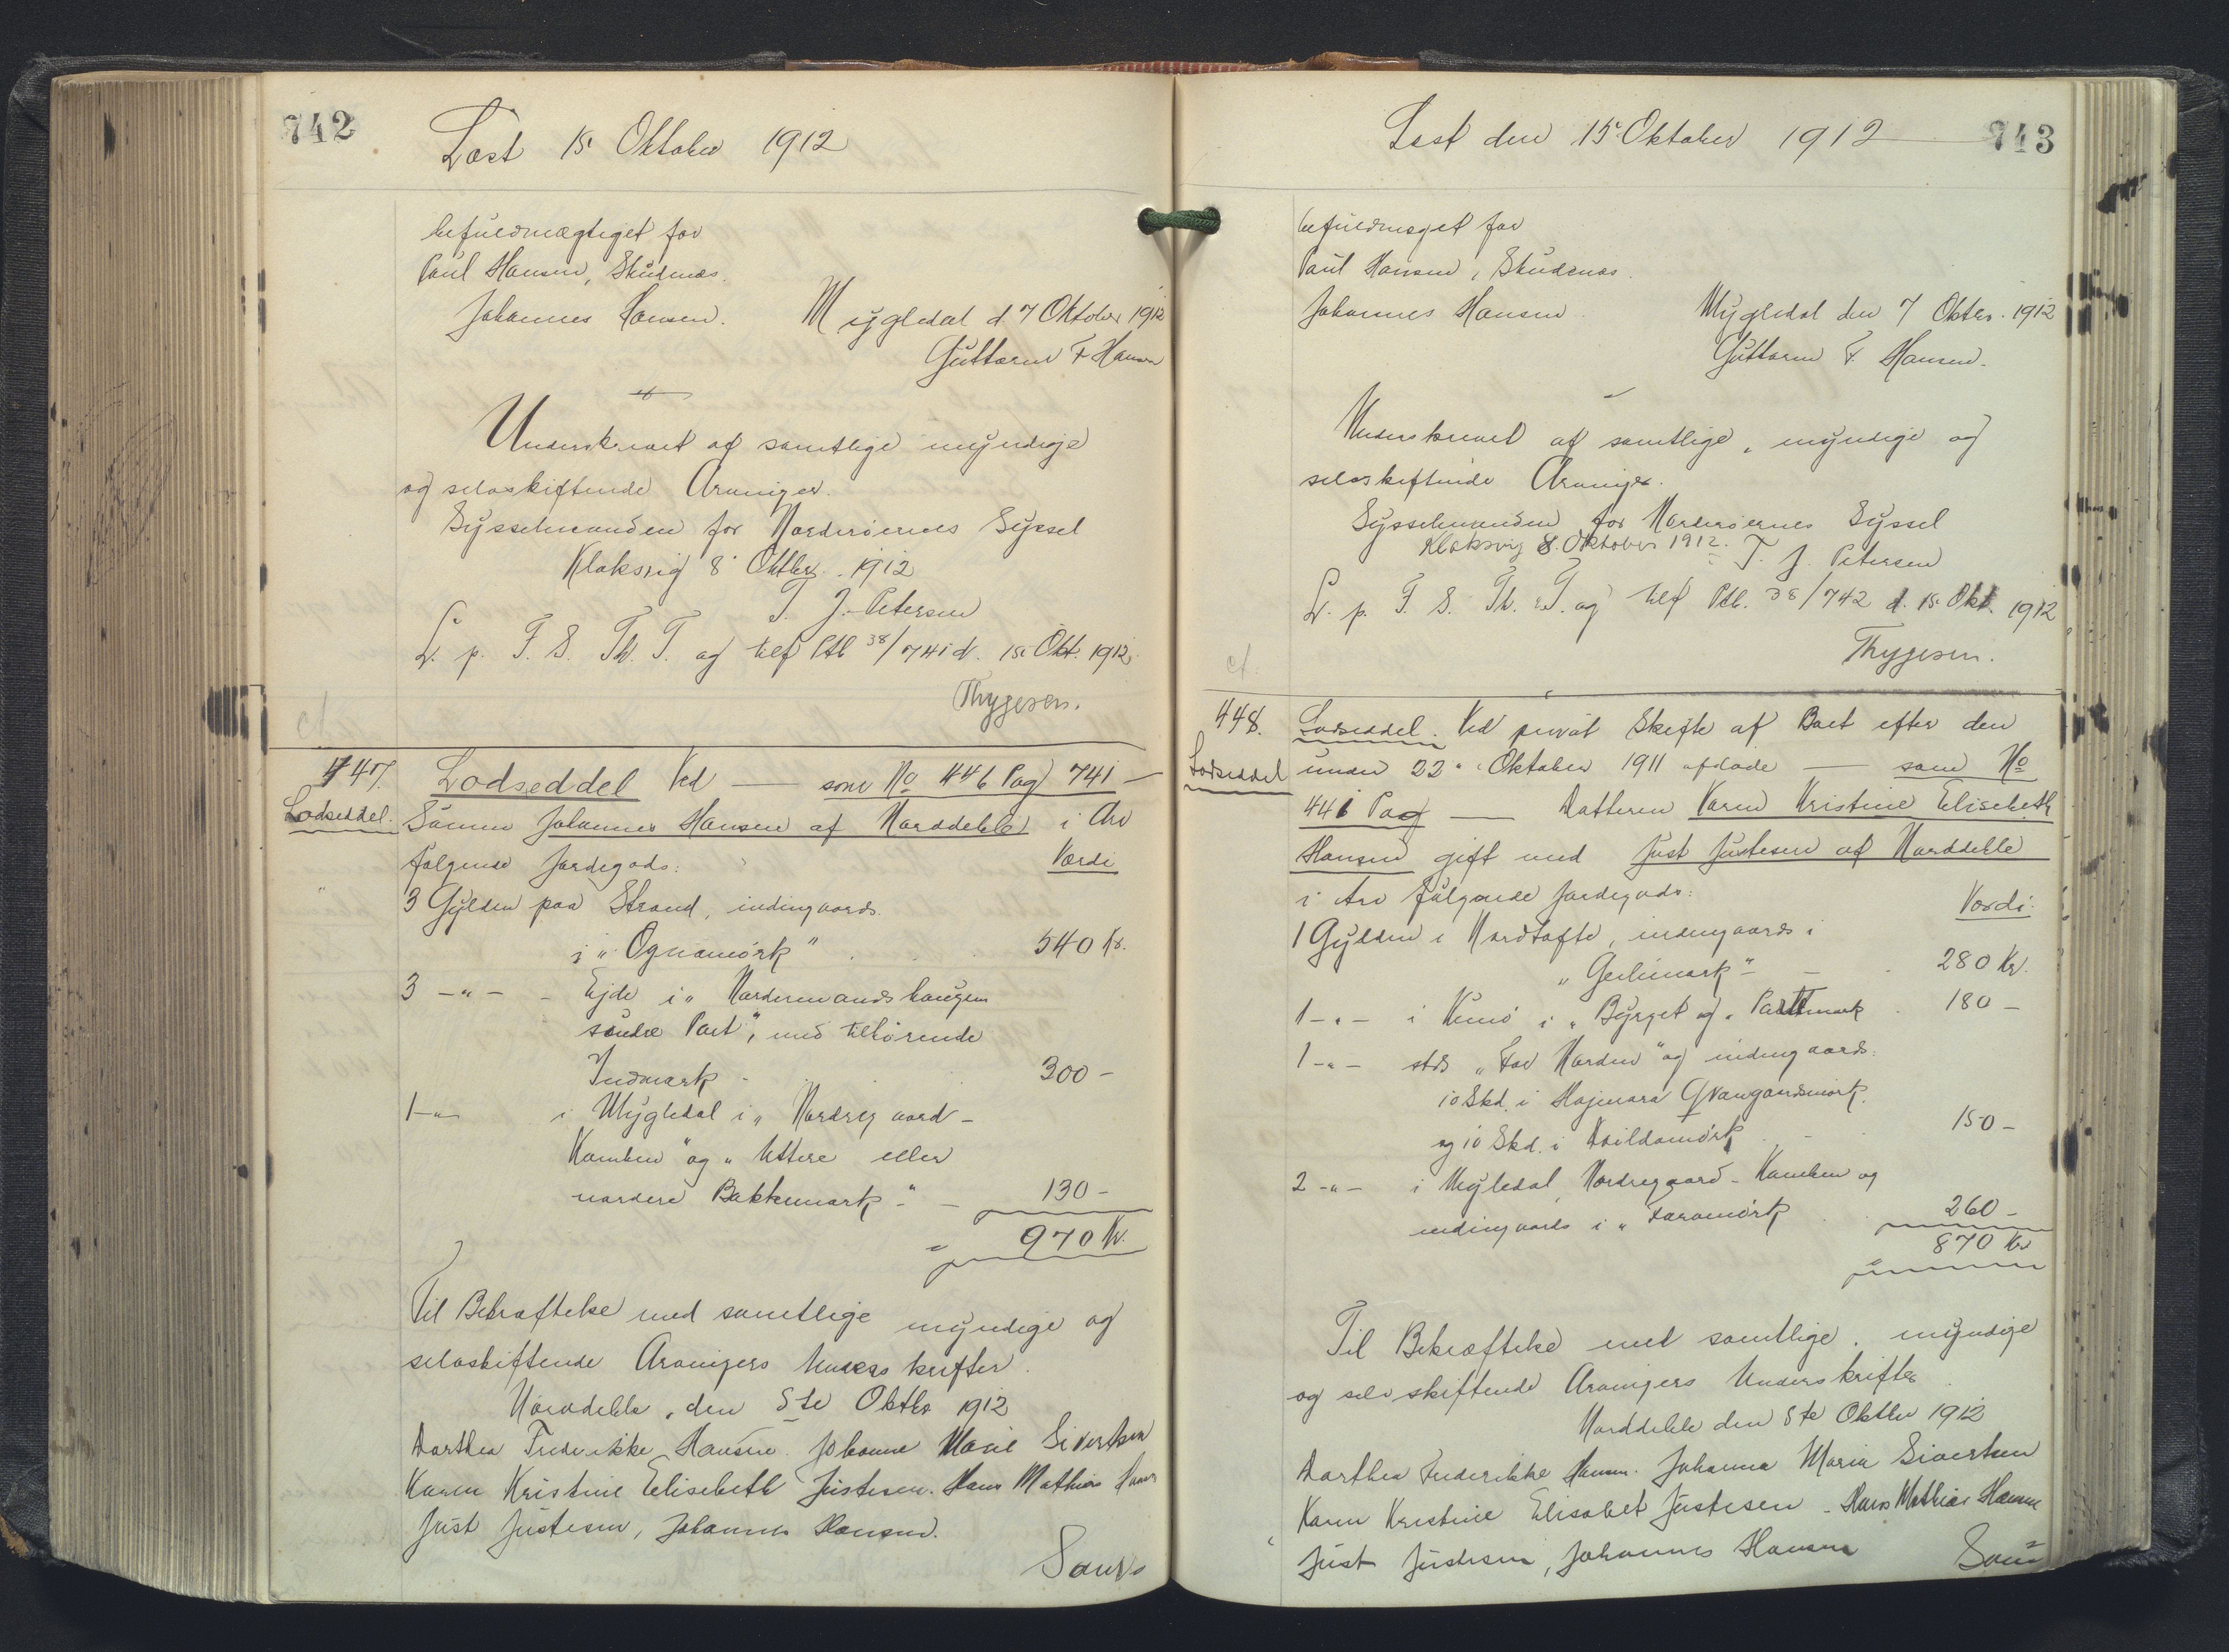 742
Læst 15. Oktober 1912
befuldmægtiget for
Paul Hansen, Skudenæs.
Johannes Hansen. Mygledal d. 7 Oktober 1912
Guttorm F Hansen
Underskrevet af samtlige myndige
og selvskiftende Arvinger.
Sysselmanden for Norderøernes Syssel
Klaksvig 8 Oktbr. 1912
T. J. Petersen
L. p. F. S. Th. T. og tilf Ptb 38/741 d. 15 Okt. 1912.
Thygesen.
cf
447. Lodseddel Ved — som No 446 Pag 741 —
Lodseddel. Sønnen Johannes Hansen af Norddeble i Arv
følgende Jordegods: Værdi
3 Gylden paa Strand, indengaards.
i "Ognamørk" 540 Kr.
3 -"- - Ejde i "Nordermandshaugen
søndre Part", med tilhørende
Indmark - 300 -
1 -"- i Mygledal i "Nordregaard -
Kamben" og "Uttere eller
nordere Bakkemark" - 130 -
970 Kr.
Til Bekræftelse med samtlige myndige og
selvskiftende Arvingers Underskrifter.
Norddeble, den 5te Oktbr 1912
Dorthea Frederikke Hansen. Johanne Marie Sivertsen
Karen Kristine Elisebeth Justesen. Hans Mathias Hansen
Just Justesen, Johannes Hansen.
Som
743
Læst den 15 Oktober 1912
befuldmæget for
Paul Hansen, Skudenæs.
Johannes Hansen. Mygledal den 7 Oktbr. 1912
Guttorm F. Hansen.
Underskrevet af samtlige, myndige og
selvskiftende Arvinger.
Sysselmanden for Norderøernes Syssel
Klaksvig 8. Oktober 1912. T. J. Petersen
L. p. F. S. Th. T. og tilf Ptb. 38/742 d. 15 Okt. 1912
Thygesen.
cf.
448. Lodseddel. Ved privat Skifte af Boet efter den
Lodseddel under 22. Oktober 1911 afdøde — som No
446 Pag — Datteren Karen Kristine Elisebeth
Hansen gift med Just Justesen af Norddeble
i Arv følgende Jordegods: Værdi.
1 Gylden i Nordtofte, indengaards i
"Gerlimørk" - 280 Kr.
1 -"- i Kunø i "Byrget og "Partemark 180 -
1 -"- stds "For Norden" og indengaards:
10 Skd. i Hajmara Qvangardsmørk.
og 10 Skd. i Kvildamørk 150 -
2 -"- i Mygledal, Nordregaard - Kamben og
indengaards i "Faramørk 260 -
870 Kr
Til Bekræftelse med samtlige, myndige
og selvskiftende Arvingers Underskrifter
Norddeble den 5te Oktbr 1912
Dorthea Frederikke Hansen. Johanna Maria Sivertsen
Karen Kristine Elisabet Justesen - Hans Mathias Hansen
Just Justesen, Johannes Hansen
Som